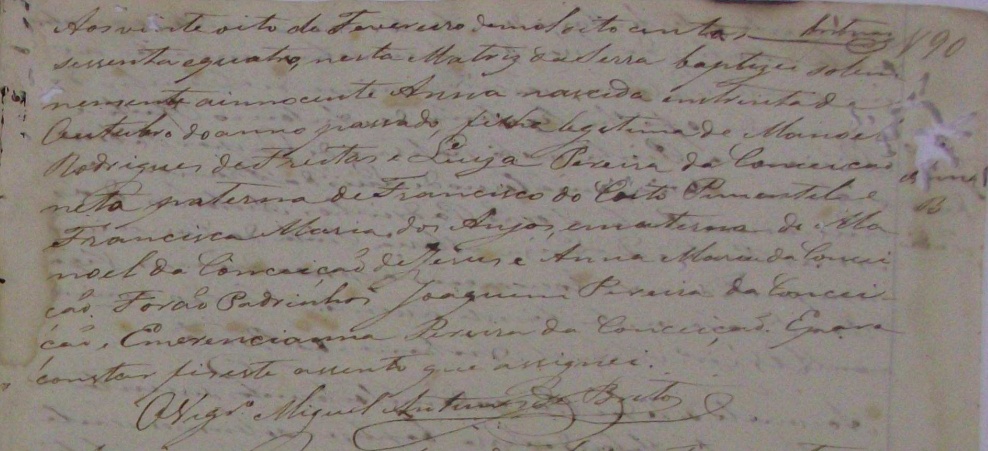 Aos vinte oito de Fevereiro de mil oito centos
sessenta e quatro, nesta Matriz da Serra baptizei solem
nemente a innocente Anna nascida em trinta de
Outubro do anno passado, filha legitima de Manoel
Rodrigues de Freitas e Luiza Pereira da Conceicão
neta paterna de Francisco do Couto Pimentel e
Francisca Maria dos Anjos, e materna de Ma
noel da Conceição de Jesus e Anna Maria da Concei
ção. Forão Padrinhos Joaquim Pereira da Concei-
ção, Emerencianna Pereira da Conceição. E para
constar fiz este assento que assignei.
O Vigrº Miguel Antunes de Brito
190
Anna
B